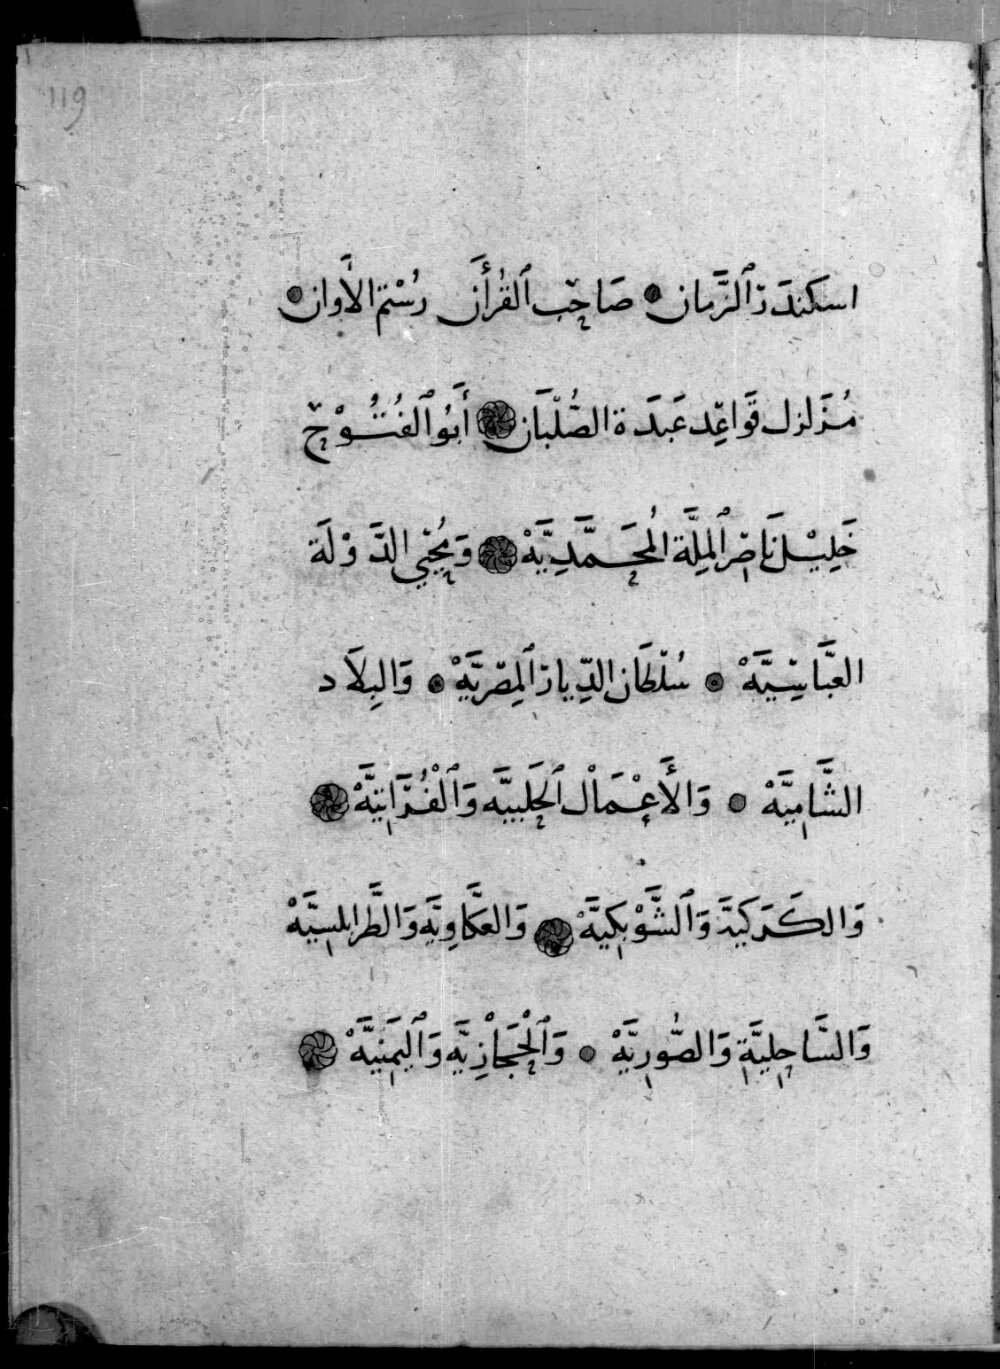 119
اسكَندَر ٱلزَّمان صَاحِب ٱلقُرأَن رُسْتم الأَوان
مُزَلزل قَواعِد عَبَدَة الصُّلْبَان أَبُو ٱلفُتُوْح
خَلِيْل نَاصِر ٱلمِلَّة المُحَمَّدِيَّهْ وَمُحْيي الدَّوْلَة
العَبَّاسِيَّهْ سُلْطَان الدِّيار ٱلمِصْرِيَّهْ وَالبِلَاد
الشَّامِيَّهْ وَالأَعْمَالْ ٱلحَلَبِيَّه وَٱلْفُرَاتِيَّهْ
وَالكَرَكيَّة وَٱلشَّوْبَكِيَّهْ وَالعَكَّاوِيَّه وَالطَّرابلسِيَّهْ
وَالسَّاحِلِيَّة وَالصُّورِيَّهْ وَٱلْحِجَازِيَّه وَٱليَمَنِيَّهْ